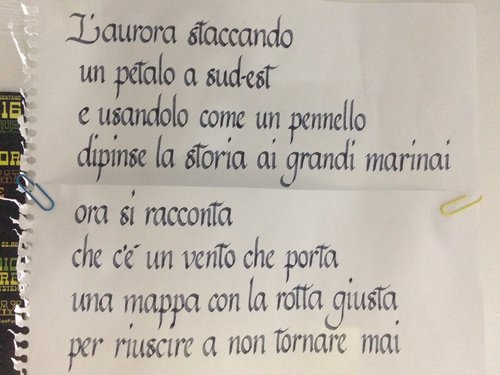 L'aurora staccando
un petalo a sud-est
e usandolo come un pennello
dipinse la storia ai grandi marinai
ora si racconta
che c'è un vento che porta
una mappa con la rotta giusta
per riuscire a non tornare mai
16